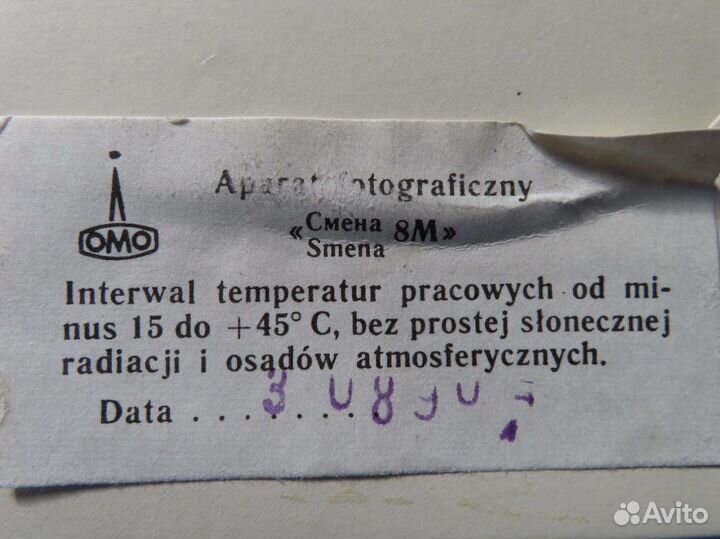 Aparat fotograficzny
ЛОМО
«Смена 8М»
Smena
Interwal temperatur pracowych od mi-
nus 15 do +45° C, bez prostej słonecznej
radiacji i osądów atmosferycznych.
Data . . . . . . .
Avito